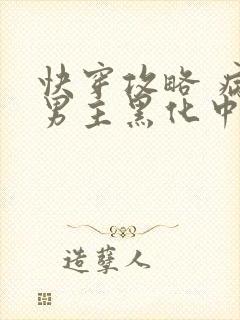 快穿攻略 病
男主黑化中
造孽人